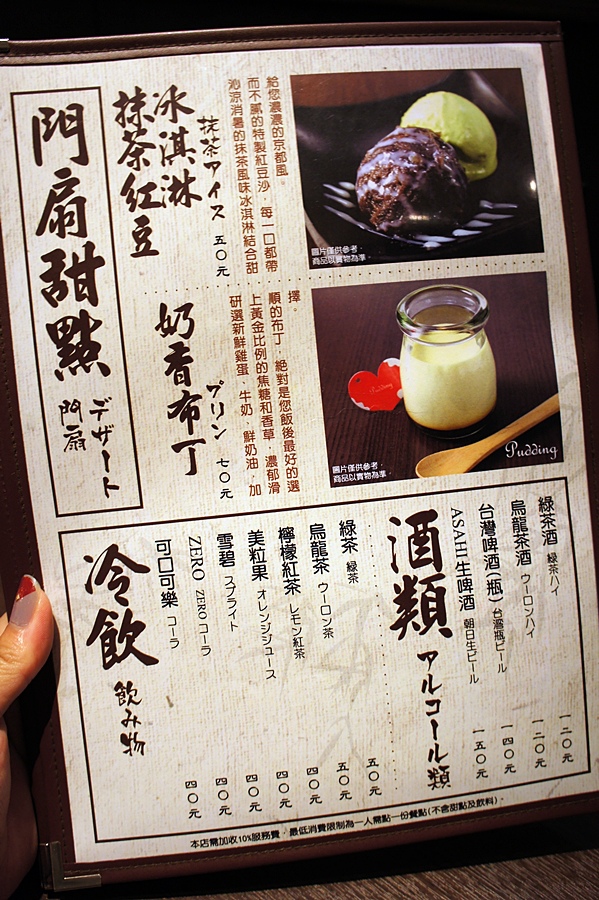 門扇甜點
デザート
門扇
冰淇淋
抹茶紅豆
抹茶アイス 五〇元
給您濃濃的京都風。
而不膩的特製紅豆沙，每一口都帶
沁涼消暑的抹茶風味冰淇淋結合甜
圖片僅供參考，
商品以實物為準。
奶香布丁
プリン 七〇元
擇。
順的布丁，絕對是您飯後最好的選
上黃金比例的焦糖和香草，濃郁滑
研選新鮮雞蛋、牛奶、鮮奶油，加
圖片僅供參考，
商品以實物為準。
Pudding
Pudding
酒類 アルコール類
綠茶酒 綠茶ハイ 一二〇元
烏龍茶酒 ウーロンハイ 一二〇元
台灣啤酒(瓶) 台灣瓶ビール 一四〇元
ASAHI生啤酒 朝日生ビール 一五〇元
冷飲
飲み物
綠茶 綠茶 五〇元
烏龍茶 ウーロン茶 五〇元
檸檬紅茶 レモン紅茶 四〇元
美粒果 オレンジジュース 四〇元
雪碧 スプライト 四〇元
ZERO ZEROコーラ 四〇元
可口可樂 コーラ 四〇元
本店需加收10%服務費，最低消費限制為一人需點一份餐點(不含甜點及飲料)。